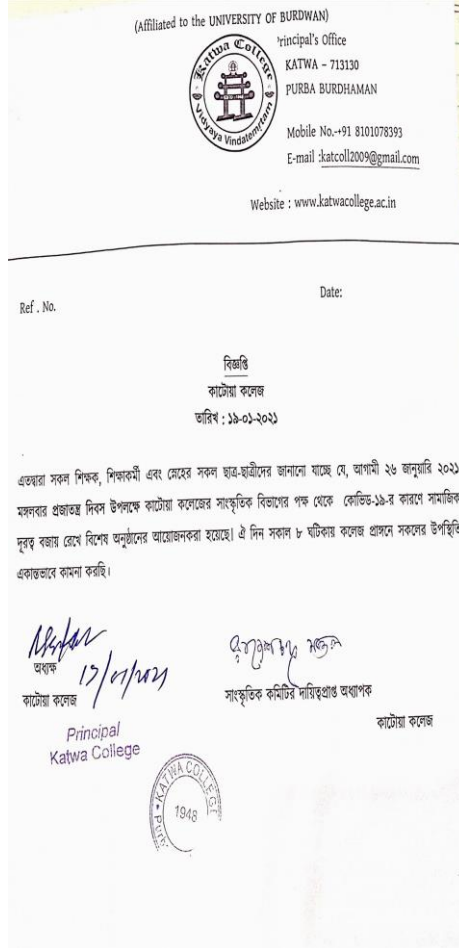 (Affiliated to the UNIVERSITY OF BURDWAN)
Katwa College
Vidyaya Vindatemritam
rincipal's Office
KATWA – 713130
PURBA BURDHAMAN
Mobile No.-+91 8101078393
E-mail :katcoll2009@gmail.com
Website : www.katwacollege.ac.in
Ref . No.
Date:
বিজ্ঞপ্তি
কাটোয়া কলেজ
তারিখ : ১৯-০১-২০২১
এতদ্বারা সকল শিক্ষক, শিক্ষাকর্মী এবং স্নেহের সকল ছাত্র-ছাত্রীদের জানানো যাচ্ছে যে, আগামী ২৬ জানুয়ারি ২০২১
মঙ্গলবার প্রজাতন্ত্র দিবস উপলক্ষে কাটোয়া কলেজের সাংস্কৃতিক বিভাগের পক্ষ থেকে কোভিড-১৯-র কারণে সামাজিক
দূরত্ব বজায় রেখে বিশেষ অনুষ্ঠানের আয়োজনকরা হয়েছে। ঐ দিন সকাল ৮ ঘটিকায় কলেজ প্রাঙ্গনে সকলের উপস্থিতি
একান্তভাবে কামনা করছি।
অধ্যক্ষ
কাটোয়া কলেজ
Principal
Katwa College
সাংস্কৃতিক কমিটির দায়িত্বপ্রাপ্ত অধ্যাপক
কাটোয়া কলেজ
KATWA COLLEGE
1948